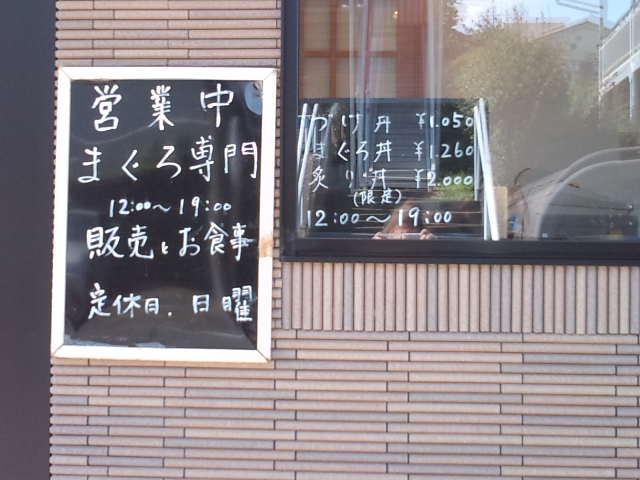 営業中
まぐろ専門
12:00～19:00
販売とお食事
定休日.日曜
づけ丼 ¥1.050
まぐろ丼 ¥1.260
炙り丼 ¥2.000
(限定)
12:00～19:00